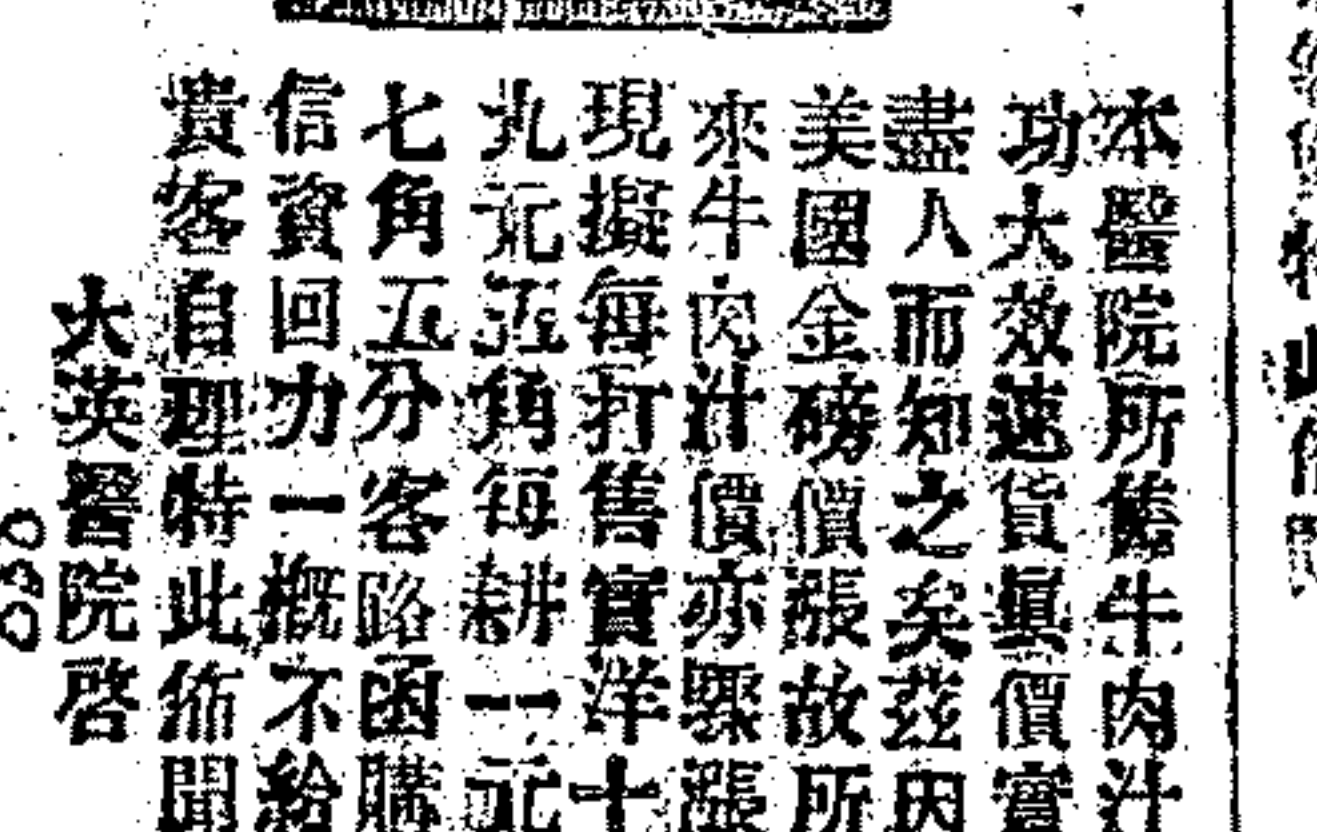 本醫院所售牛肉汁
功大效速貨真價實
盡人而知之矣茲因
美國金磅價張故所
來牛肉汁價亦驟漲
現擬每打售實洋十
九元五角每耕一元
七角五分客路函購
信資回力一概不給
貴客自理特此佈聞
大英醫院啓